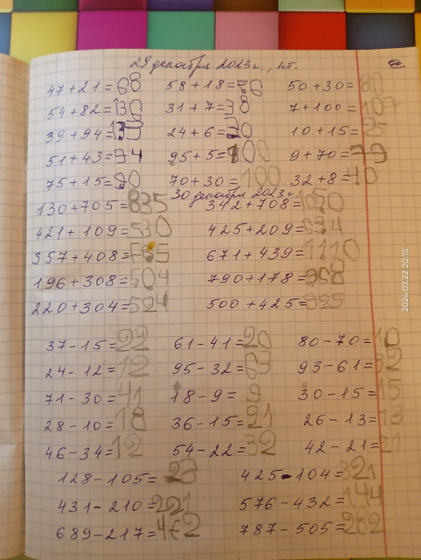 29 декабря 2023г., пт.
47+21=68 58+18=76 50+30=80
54+82=136 31+7=38 7+100=107
39+94=133 24+6=30 10+15=25
51+43=94 95+5=100 9+70=79
75+15=90 70+30=100 32+8=40
30 декабря 2023г.
130+705=835 342+708=1050
421+109=530 425+209=634
357+408=765 671+439=1110
196+308=504 790+178=968
220+304=524 500+425=925
37-15=22 61-41=20 80-70=10
24-12=12 95-32=63 93-61=32
71-30=41 18-9=9 30-15=15
28-10=18 36-15=21 26-13=13
46-34=12 54-22=32 42-21=21
128-105=23 425-104=321
431-210=221 576-432=144
689-217=472 787-505=282
2024.03.22 20:15